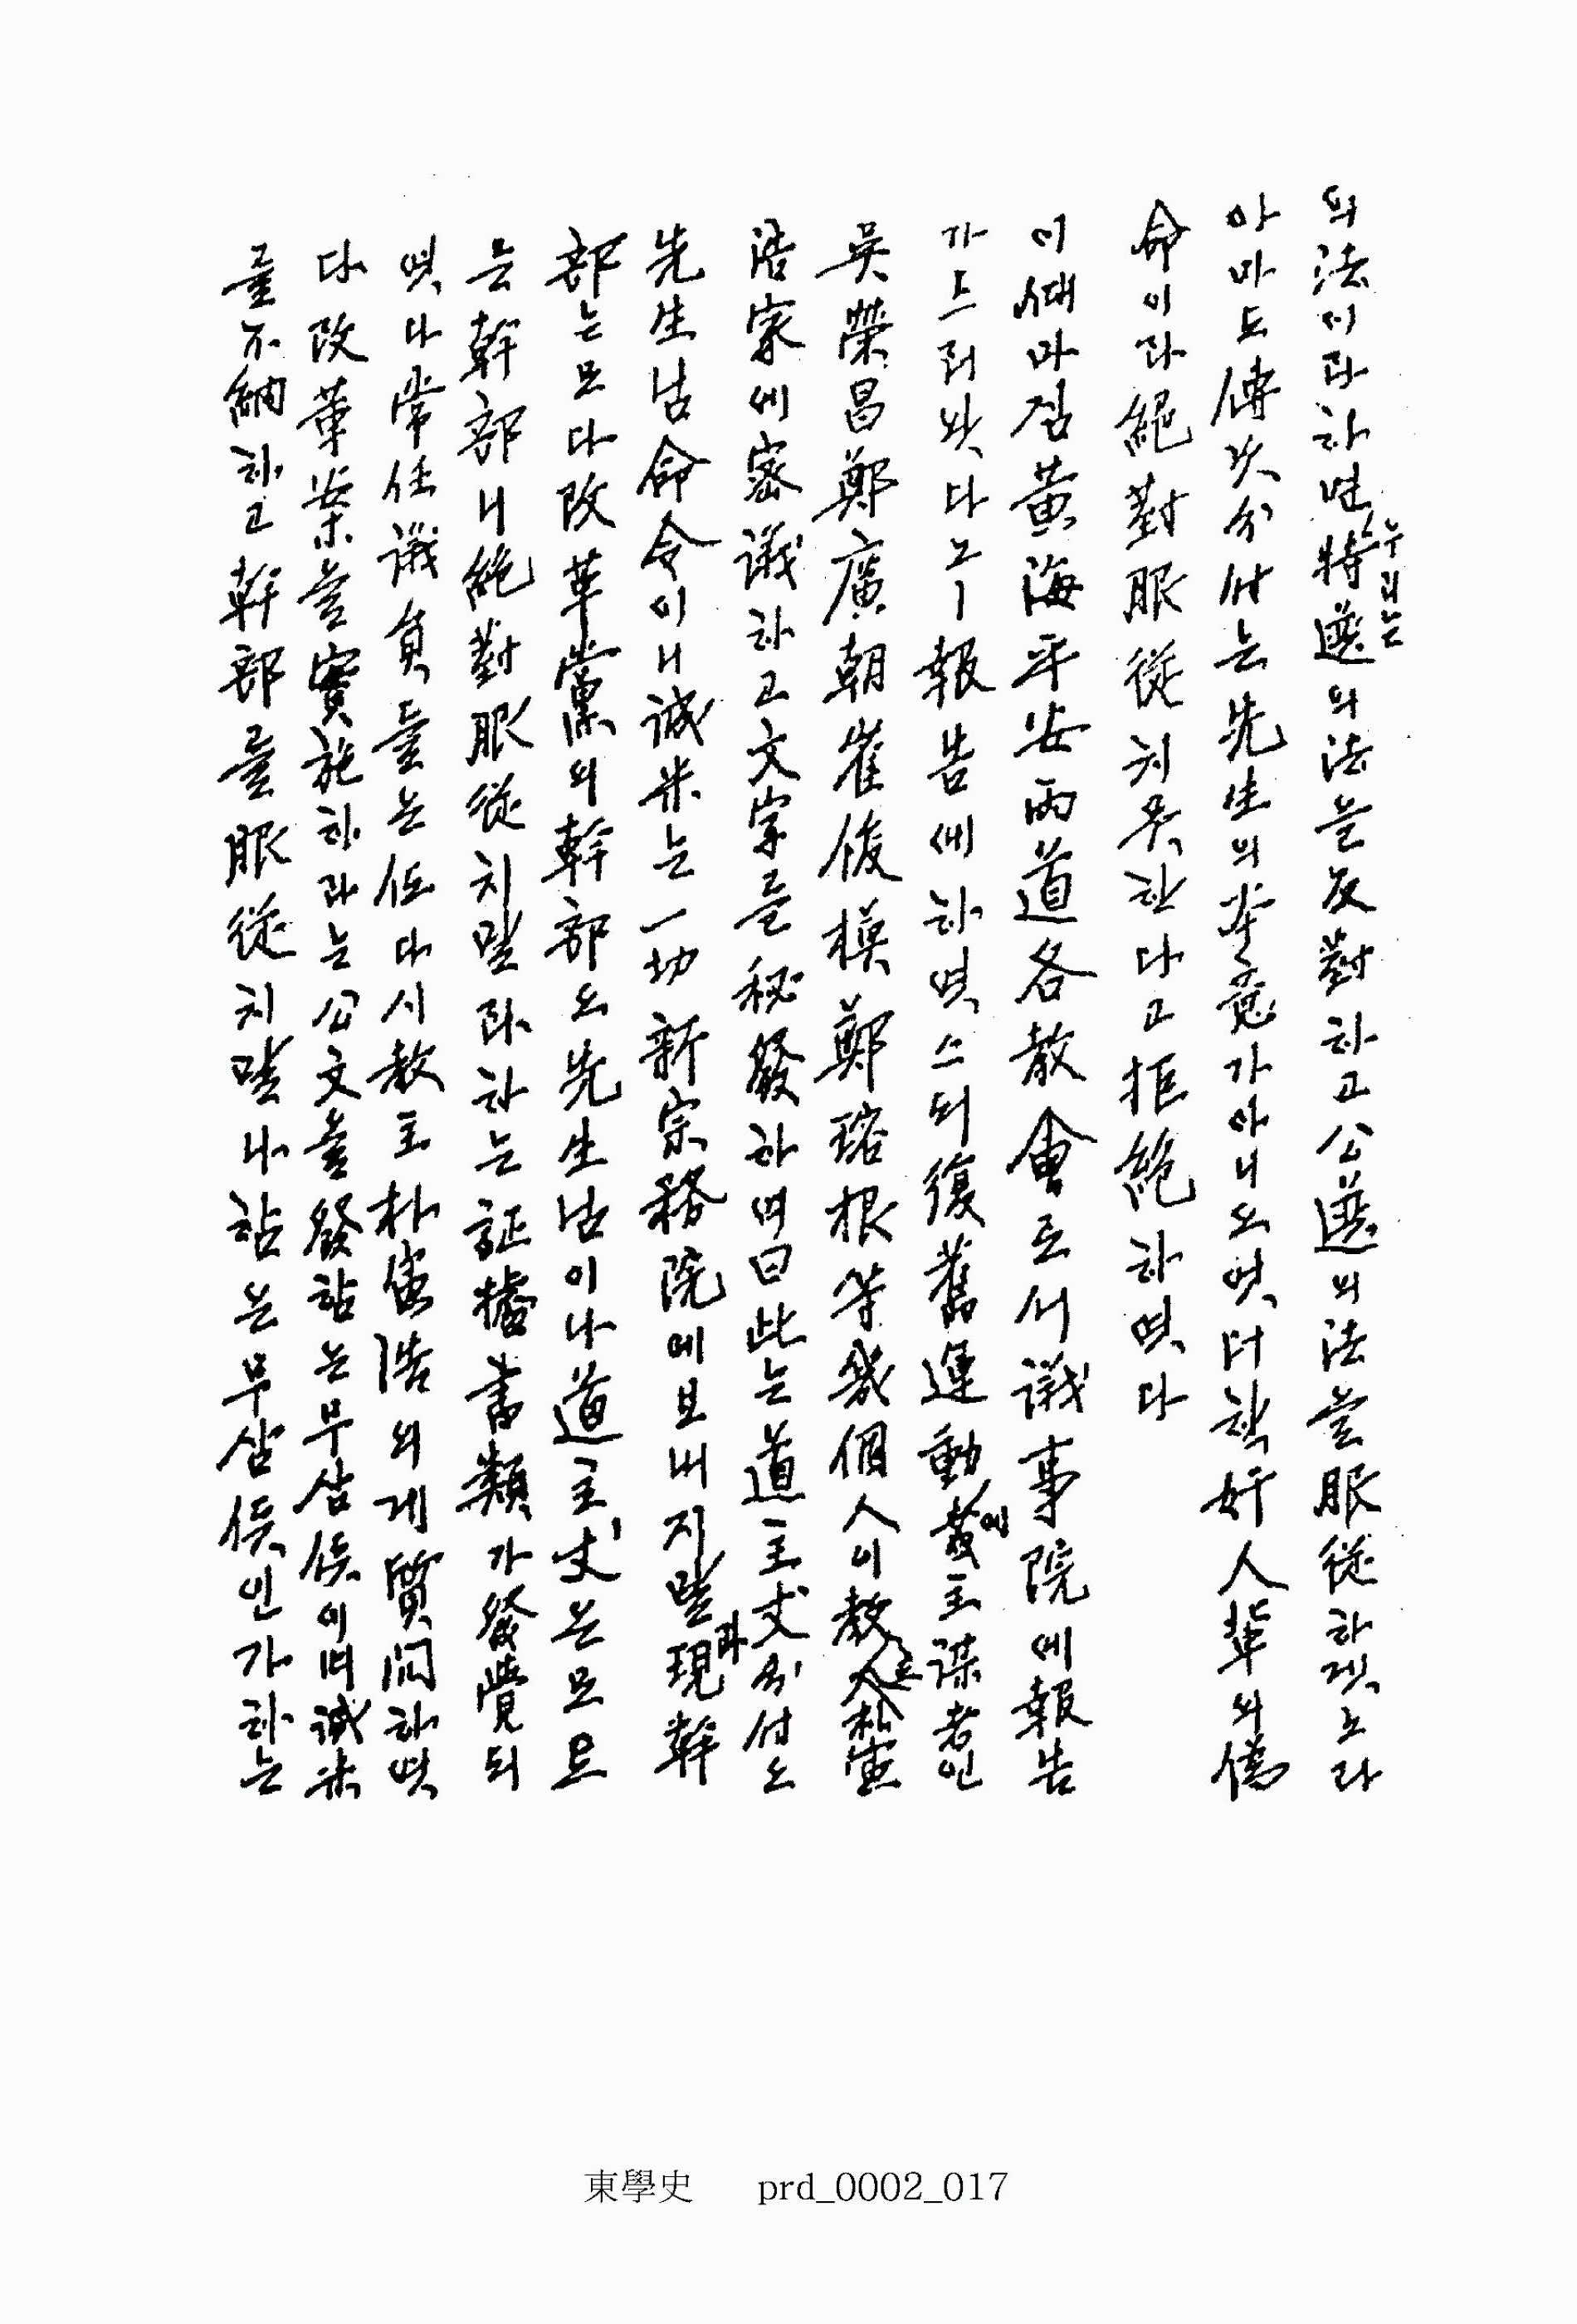 의法이라하면우리는特選의法을反對하고公選의法을服從하겟노라
아마도傳次分付는先生의本意가아니오엿더한奸人輩의僞
命이라絕對服從치못한다고拒絕하엿다
이때마침黃海平安兩道各敎會로서議事院에報告
가드러왓다그ㅣ報告에하엿스되復舊運動에主謀者인
吳榮昌鄭廣朝崔俊模鄭瑢根等幾個人이敎人朴寅
浩家에密議하고文字를秘發하며曰此는道主丈分付오
先生님命令이니誠米는一切新宗務院에보내지말라現幹
部는모다改革黨의幹部오先生님이나道主丈은모르
는幹部니絕對服從치말라하는証據書類가發覺되
엿다常任議員들은任다시敎主朴寅浩의게質問하엿
다改革案을實施하라는公文을發함은무삼意이며誠米
를不納하고幹部를服從치말나함은무삼意인가하는
東學史 prd_0002_017